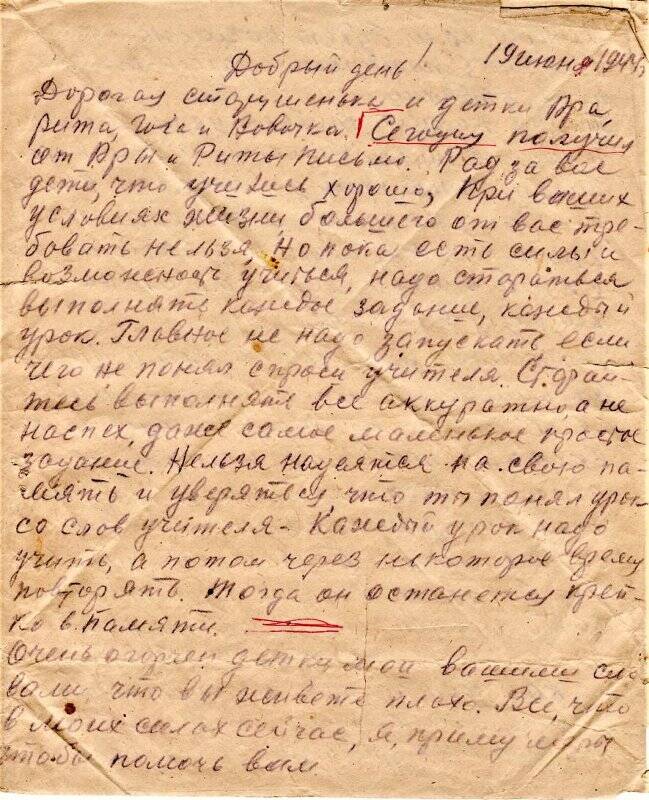 19 июня 1944г
Добрый день!
Дорогая старушенька и детки Ира,
Рита, Гога и Вовочка. Сегодня получил
от Иры и Риты письмо. Рад за вас
дети, что учитесь хорошо, при ваших
условиях жизни большего от вас тре-
бовать нельзя, но пока есть силы и
возможность учиться, надо стараться
выполнять каждое задание, каждый
урок. Главное не надо запускать если
чего не понял спроси учителя. Старай-
тесь выполнять все аккуратно, а не
наспех, даже самое маленькое простое
задание. Нельзя надеятся на свою па-
мять и уверяться что ты понял урок
со слов учителя - Каждый урок надо
учить, а потом через некоторое время
повторять. Тогда он останется креп-
ко в памяти.
Очень огорчен детки мои вашими сло-
вами что вы живете плохо. Все, что
в моих силах сейчас, я, приму меры
чтобы помочь вам